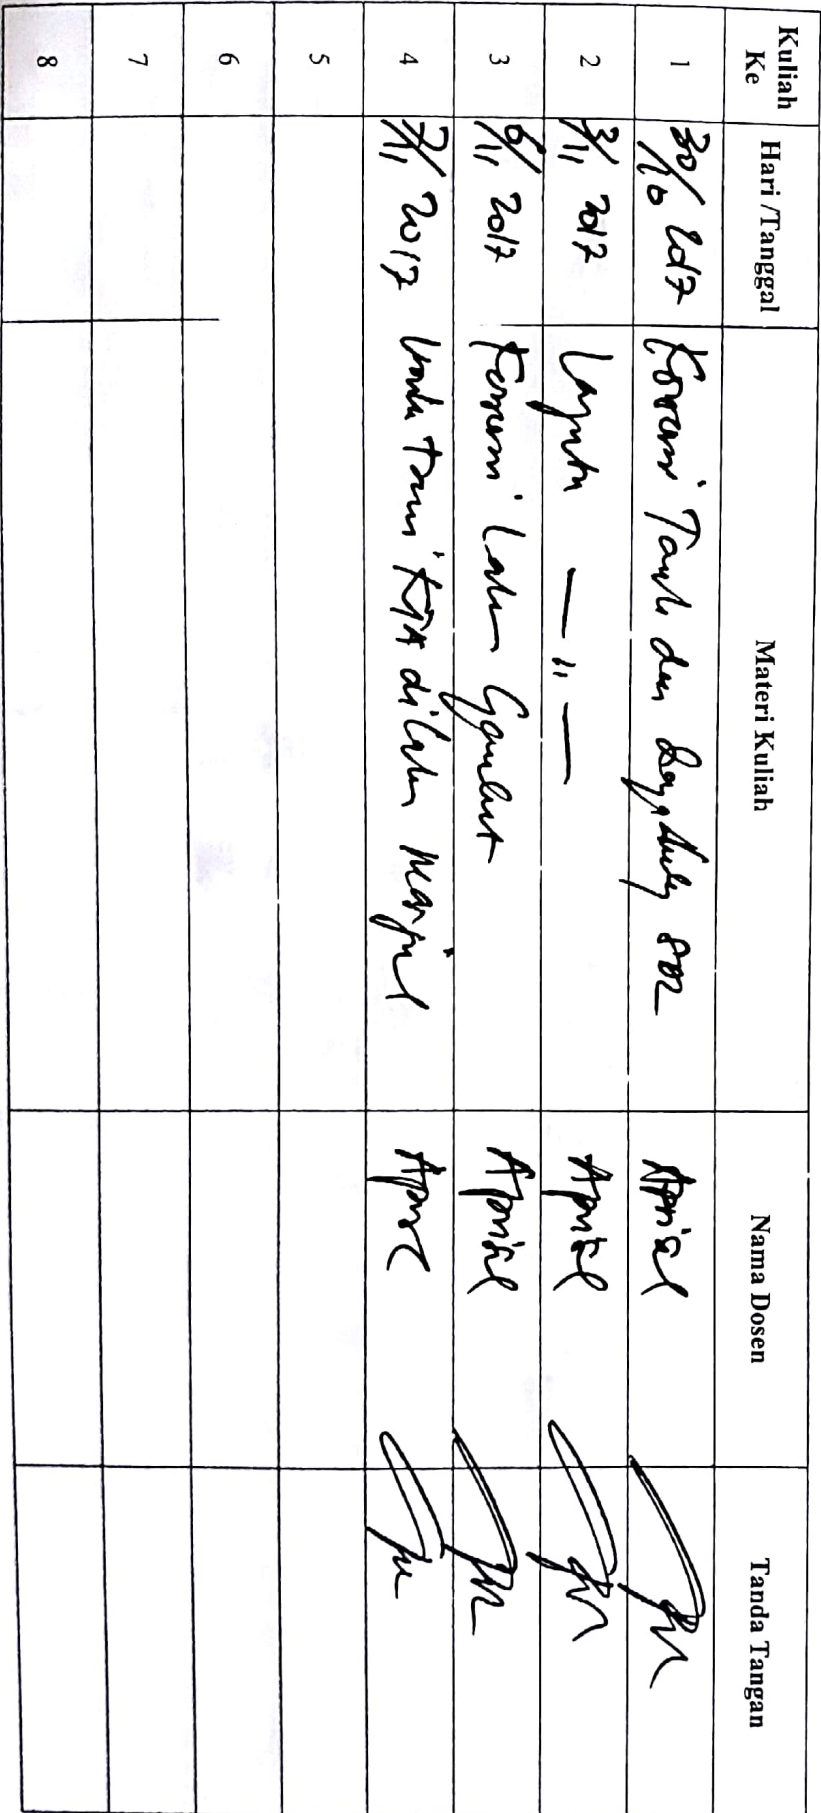 Kuliah Ke Hari /Tanggal Materi Kuliah Nama Dosen Tanda Tangan
1 30/10 2017 Tanah dan Aprisal
2 3/11 2017 Lanjutan — " — Aprisal
3 6/11 2017 Konservasi Lahan Gambut Aprisal
4 7/11 2017 KTA di Lahan Marginal
5
6
7
8